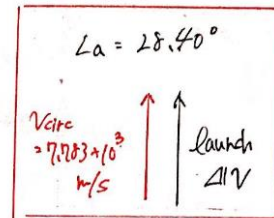 La = 28.40°
Vcirc
= 7.783*10³
m/s
launch
ΔV